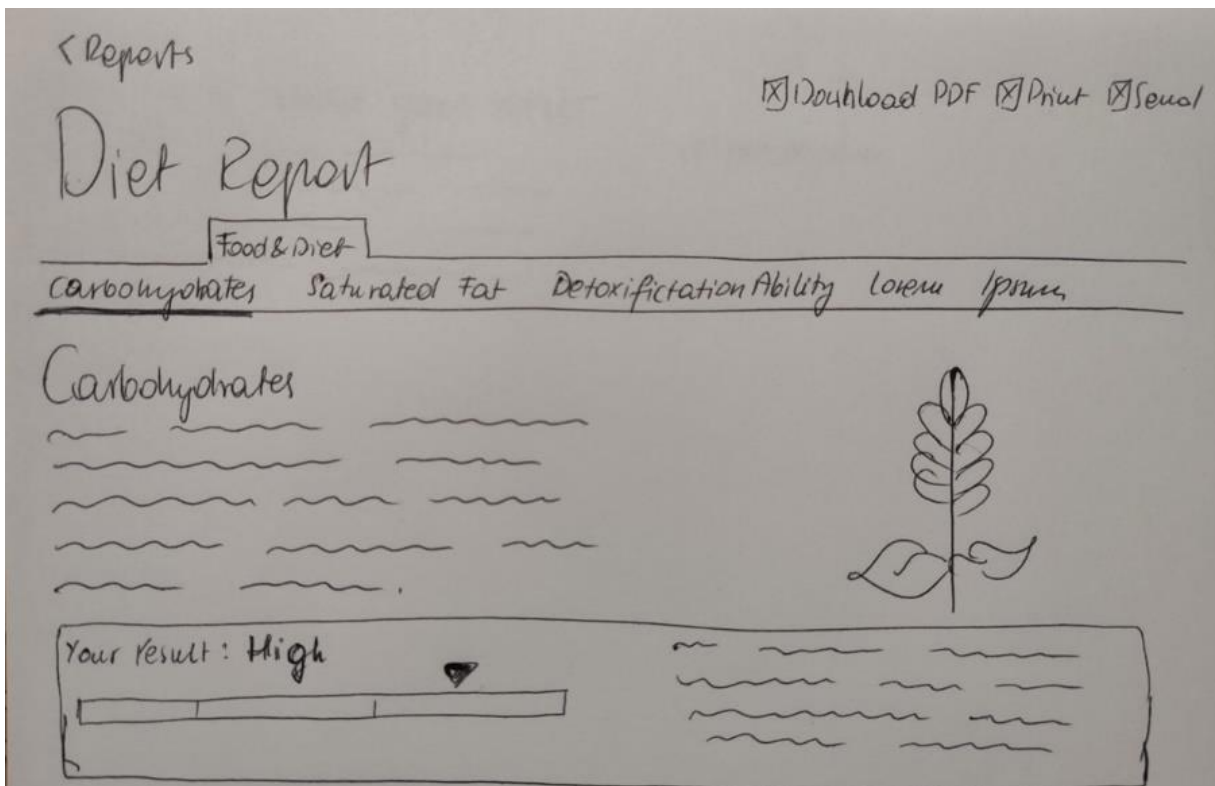 < Reports
Download PDF Print Send
Diet Report
Food & Diet
Carbohydrates Saturated Fat Detoxifictation Ability Lorem Ipsum
Carbohydrates
Your result: High